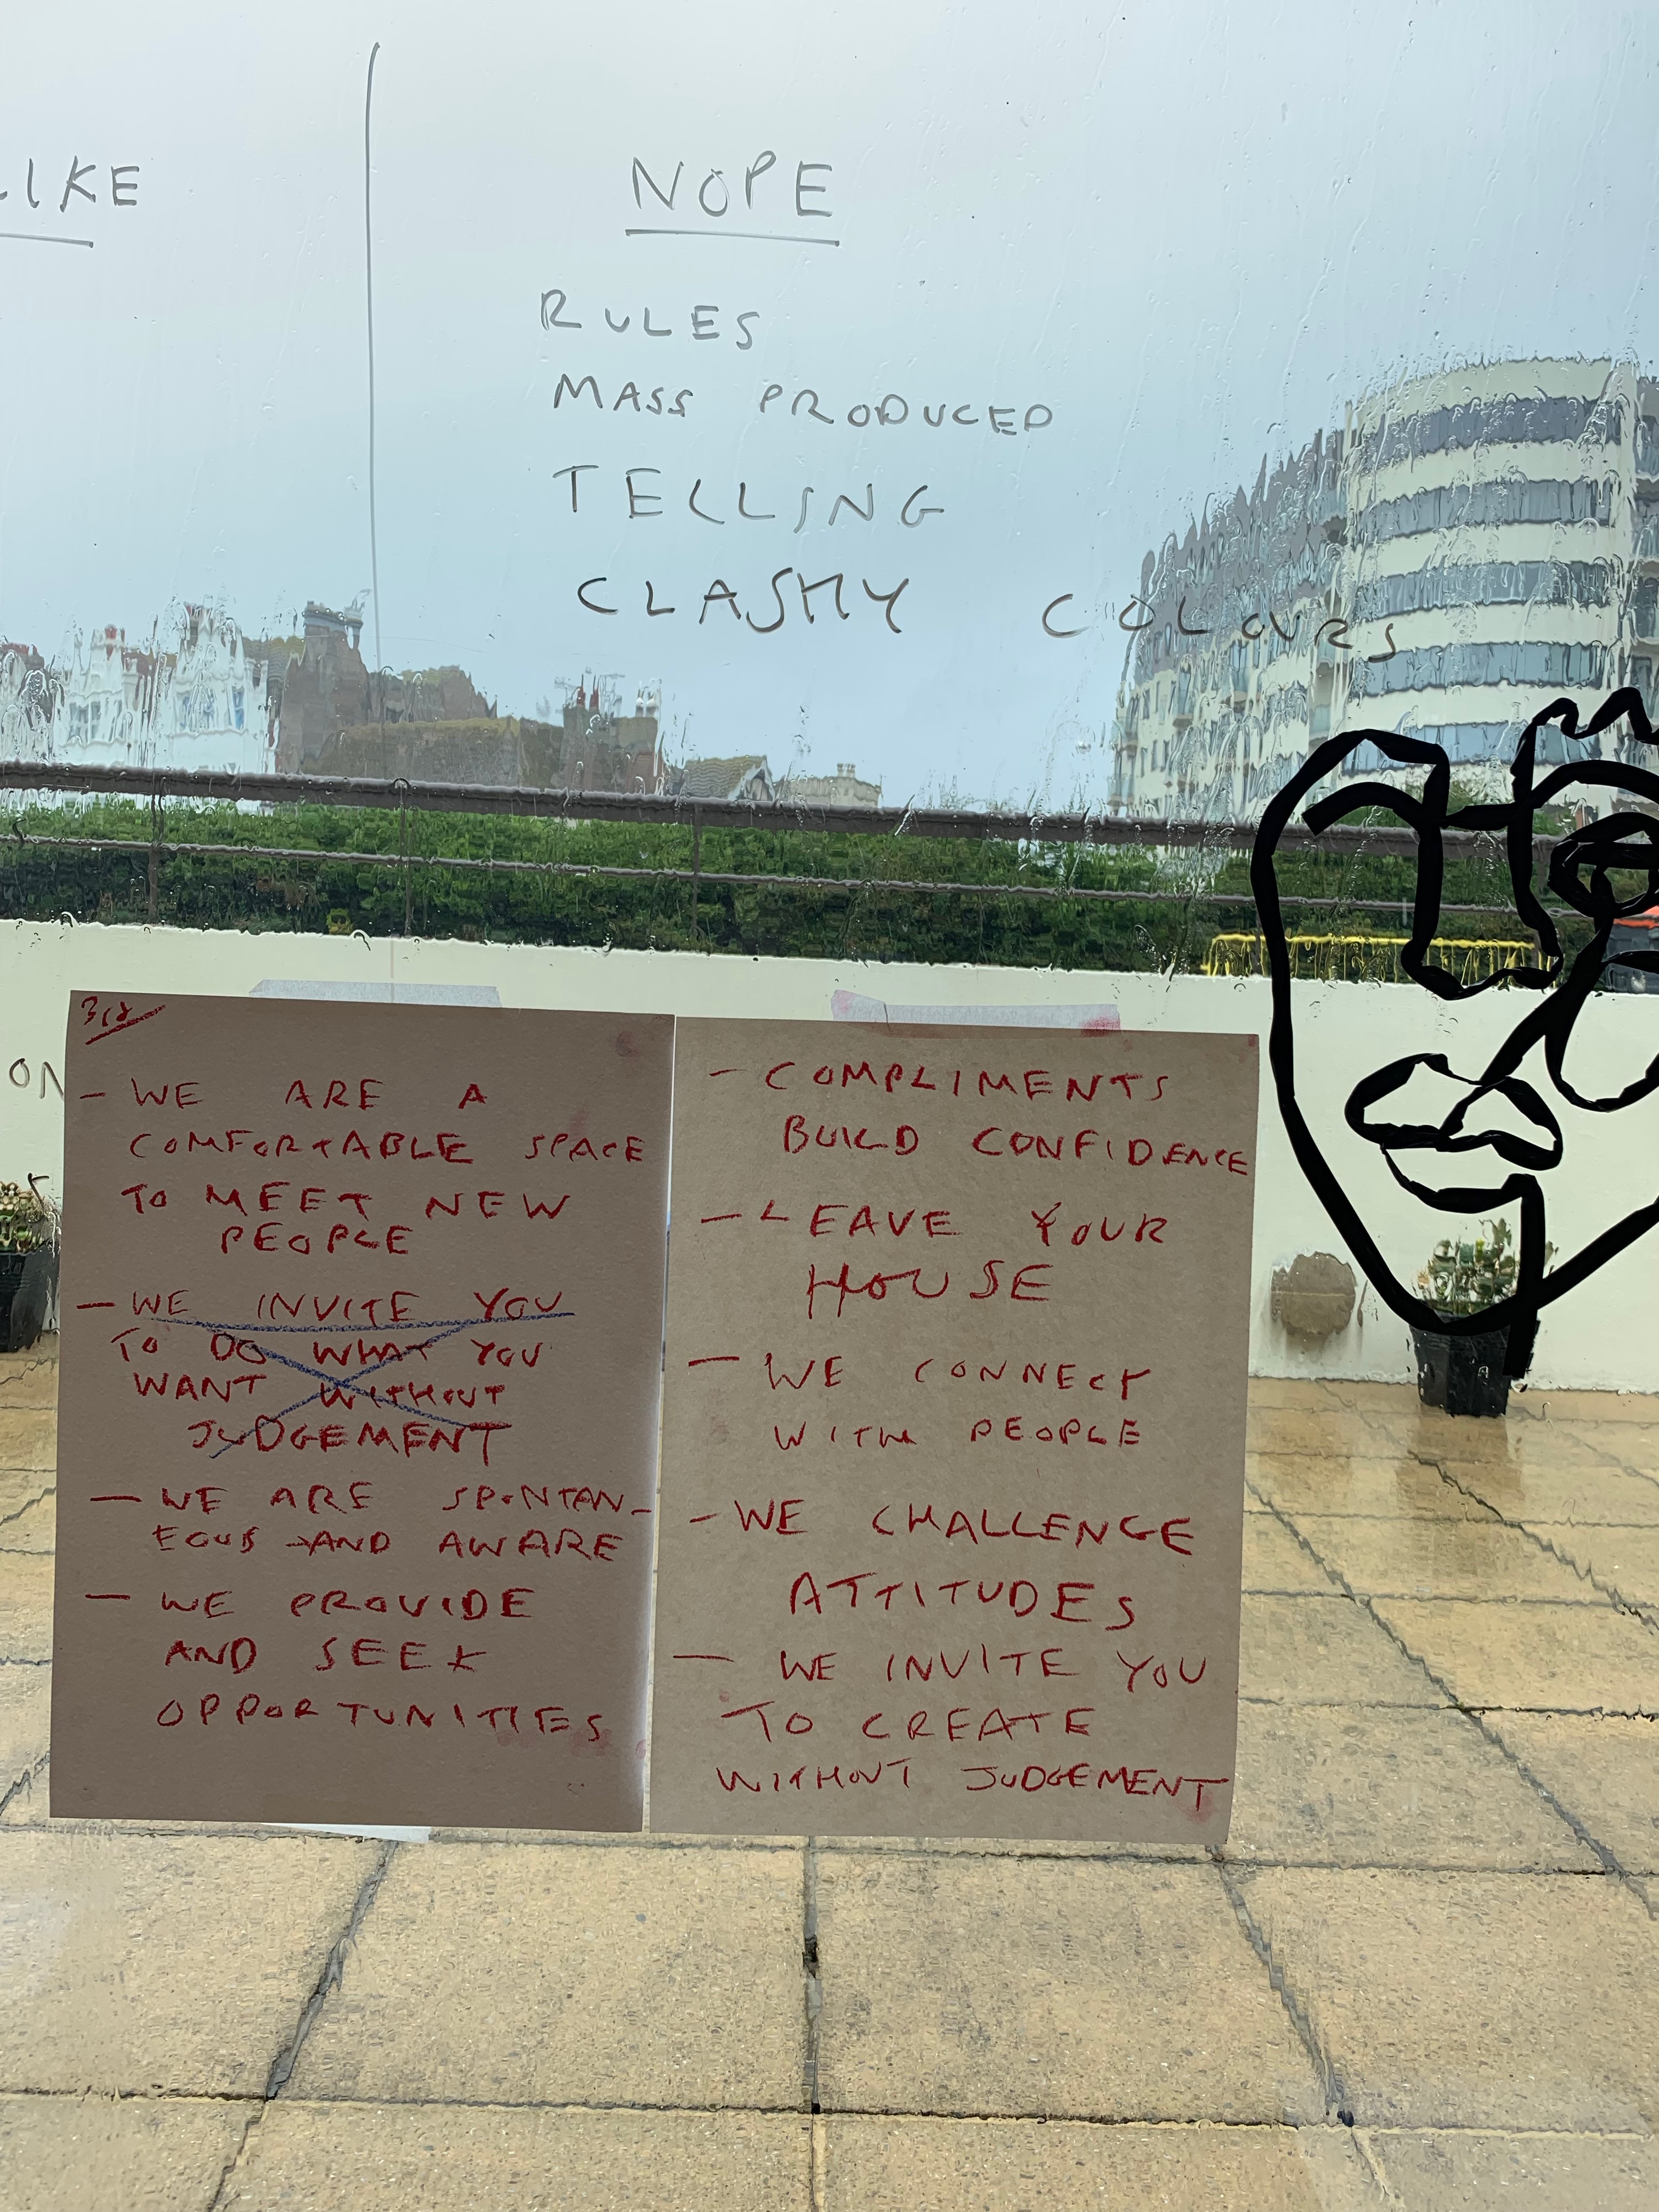 LIKE
NOPE
RULES
MASS PRODUCED
TELLING
CLASHY COLOURS
ON
3rd
- WE ARE A
COMFORTABLE SPACE
TO MEET NEW
PEOPLE
- WE INVITE YOU
TO DO WHAT YOU
WANT WITHOUT
JUDGEMENT
- WE ARE SPONTAN-
EOUS AND AWARE
- WE PROVIDE
AND SEEK
OPPORTUNITIES
- COMPLIMENTS
BUILD CONFIDENCE
- LEAVE YOUR
HOUSE
- WE CONNECT
WITH PEOPLE
- WE CHALLENGE
ATTITUDES
- WE INVITE YOU
TO CREATE
WITHOUT JUDGEMENT